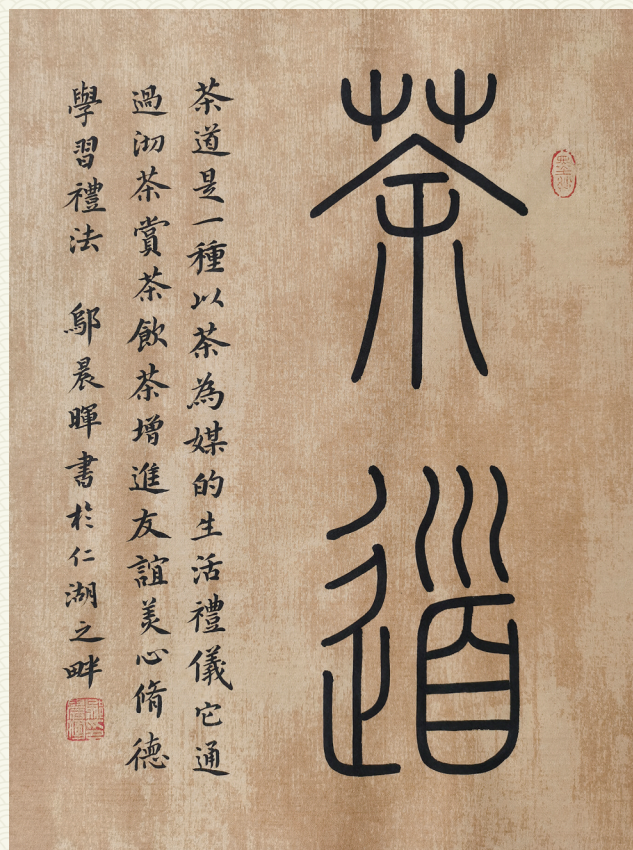 茶道
茶道是一種以茶為媒的生活禮儀它通
過沏茶賞茶飲茶增進友誼美心脩德
學習禮法 鄔晨暉書於仁湖之畔